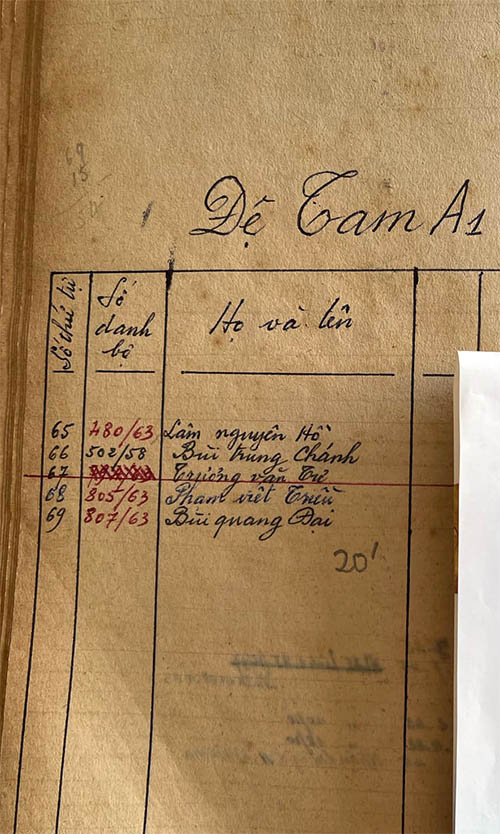 69
15
Đệ Tam A1
Số thứ tự
Số danh bộ
Họ và tên
65 480/63 Lâm nguyên Hồ
66 502/58 Bùi trung Chánh
67 Trương văn Tư
68 805/63 Phạm viết Triều
69 807/63 Bùi quang Đại
20'